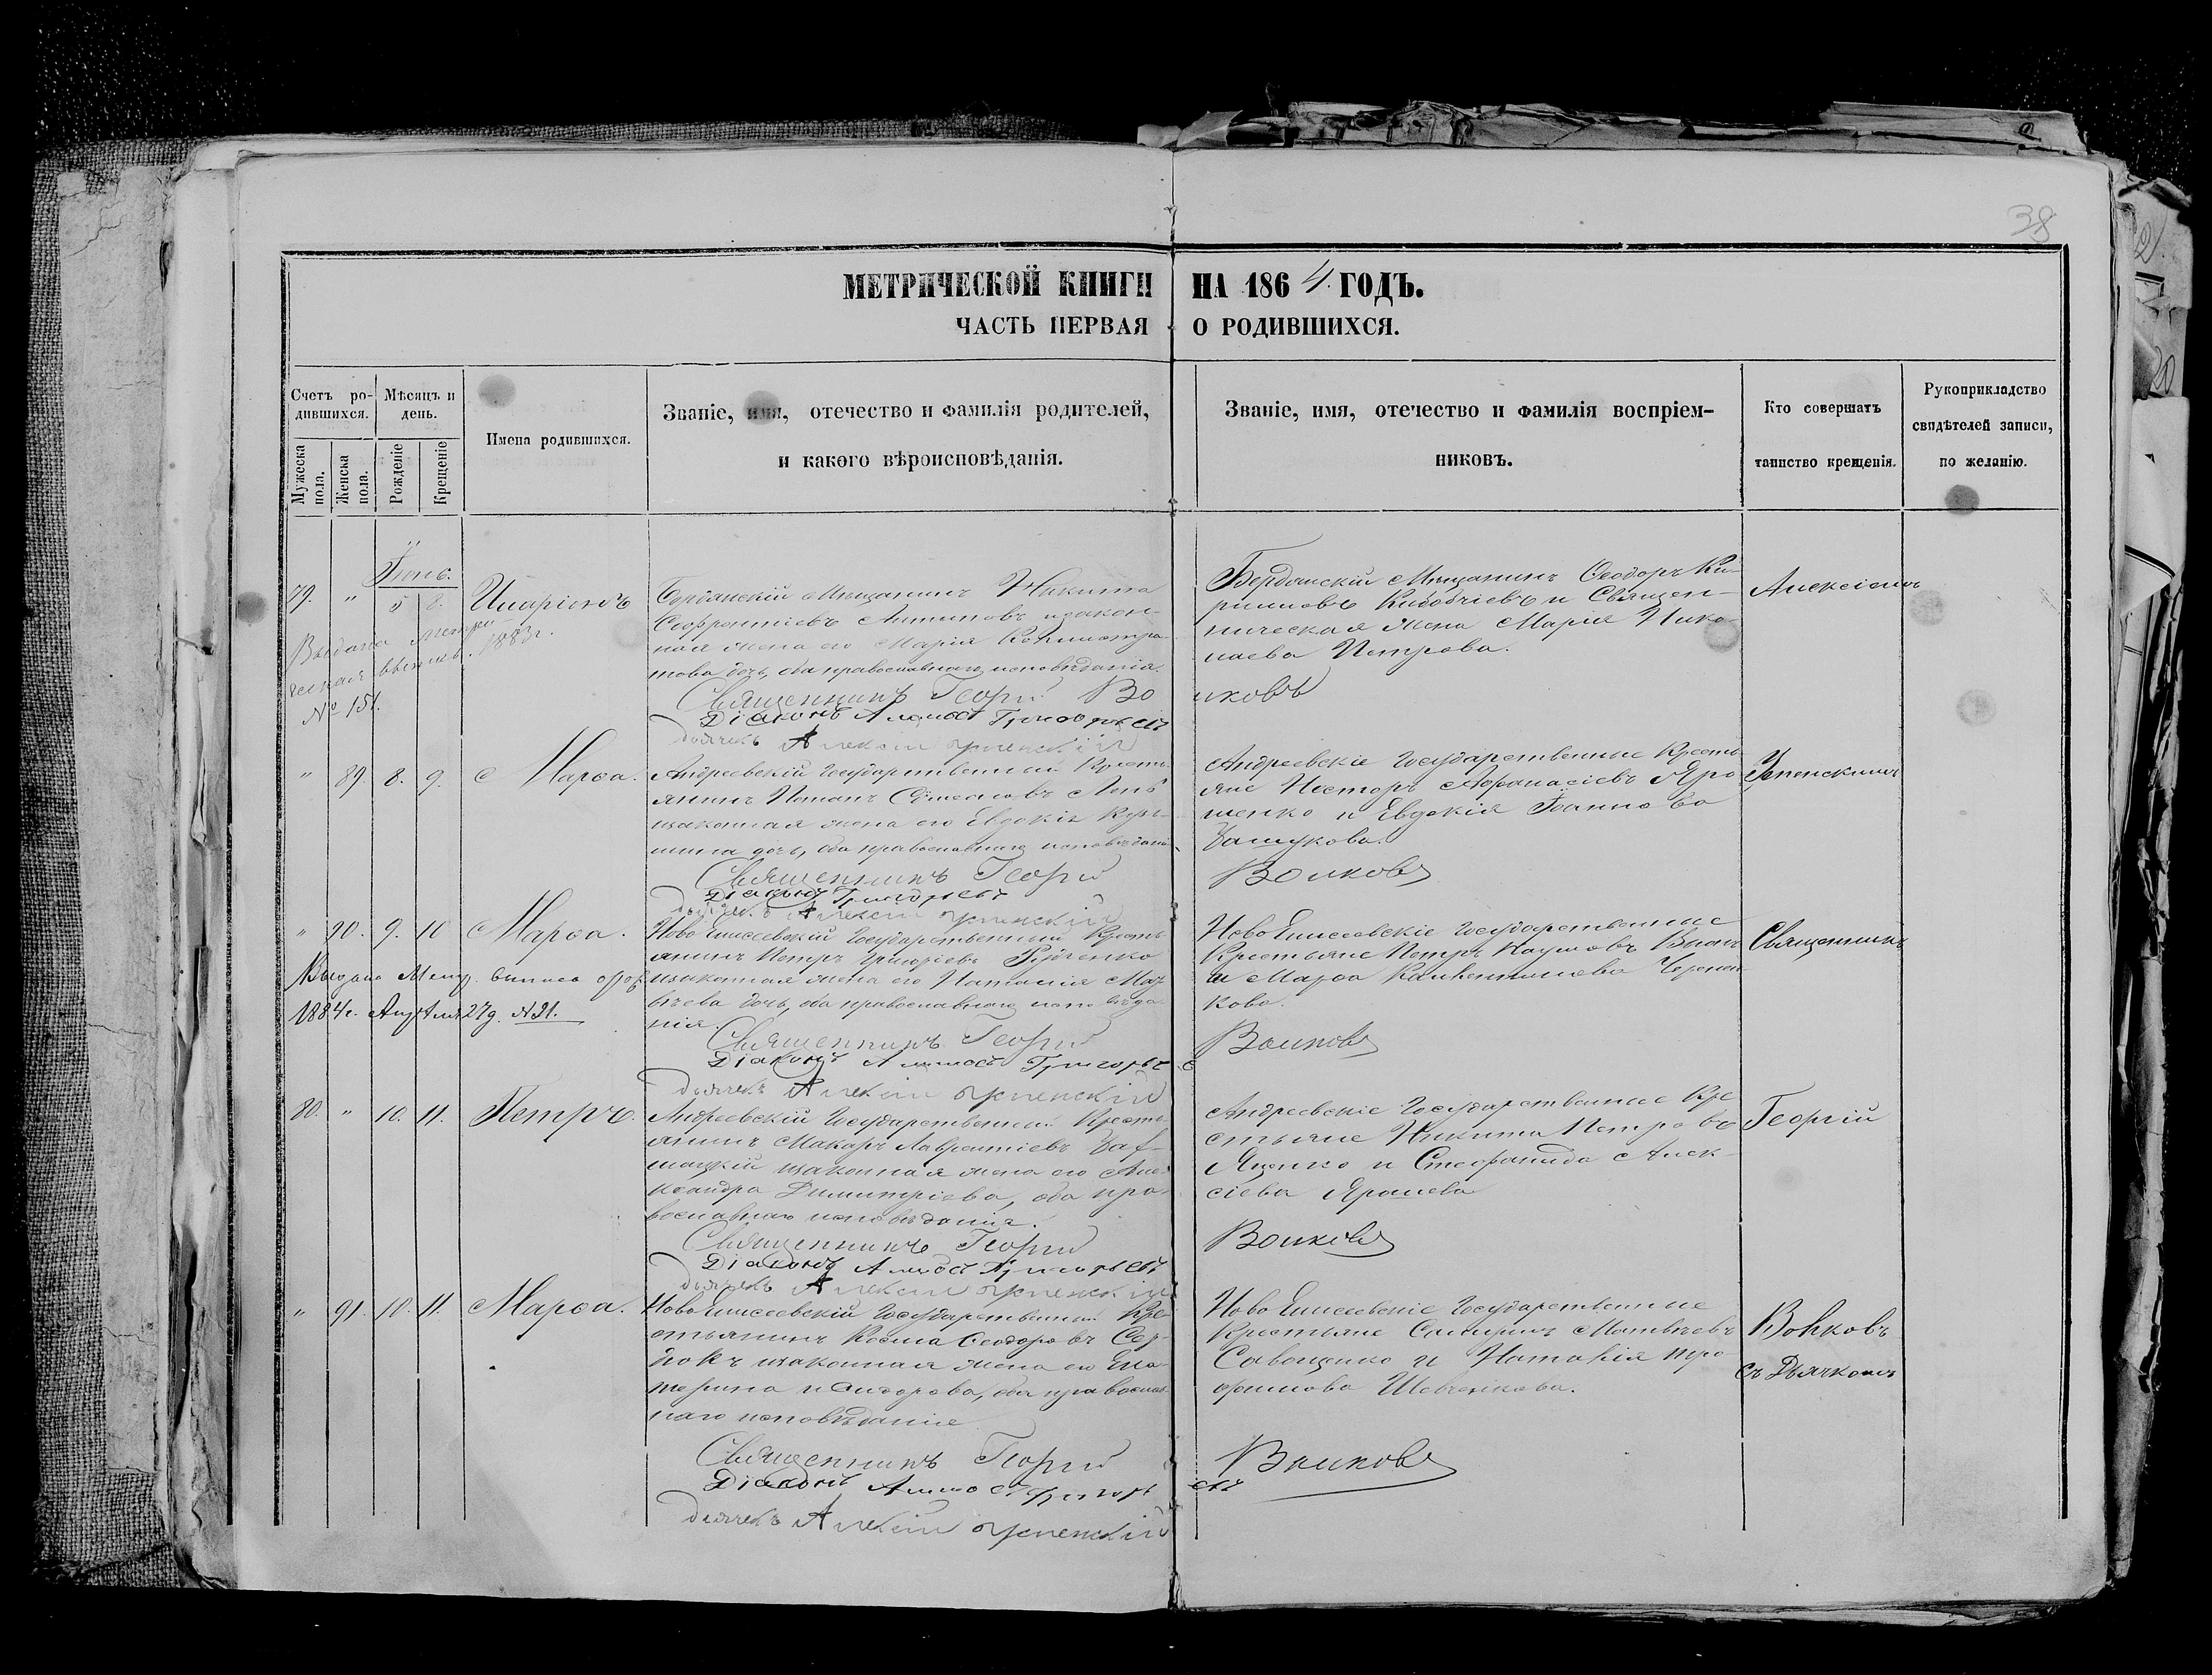 38
МЕТРИЧЕСКОЙ КНИГИ НА 1864 ГОДЪ.
ЧАСТЬ ПЕРВАЯ О РОДИВШИХСЯ.
Счетъ ро-
дившихся.
Мужеска пола.
Женска пола.
Мѣсяцъ и
день.
Рожденіе
Крещеніе
Имена родившихся.
Званіе, имя, отечество и фамилія родителей,
и какого вѣроисповѣданія.
Званіе, имя, отечество и фамилія воспріем-
никовъ.
Кто совершатъ
таинство крещенія.
Рукоприкладство
свидѣтелей записи,
по желанію.
Іюнь.
79. " 5 8. Иларіонъ
Бердянскій Мѣщанинъ Никита
Софроніевъ Антиповъ и закон-
ная жена его Марія
дочь, оба православнаго исповѣданія.
Бердянскій Мѣщанинъ Ѳеодоръ Ки-
рилловъ и Священ-
ническая жена Марія Нико-
лаева Петрова.
Алексіемъ
Выдана Метри-
ческая выпись. 1883 г.
№ 151.
Священникъ Георгій Волковъ
Діаконъ Аммосъ Григорьевъ
дьячекъ Алексій Успенскій
" 89. 8. 9. Марѳа.
Андреевскій Государственный Кресть-
янинъ Потапъ Симеоновъ
и законная жена его Евдокія
дочь, оба православнаго исповѣданія
Андреевскіе Государственные Кресть-
яне Несторъ Афанасіевъ Яро-
шенко и Евдокія Іоаннова
Успенскимъ
Священникъ Георгій Волковъ
Діаконъ Григорьевъ
дьячекъ Алексій Успенскій
" 90. 9. 10 Марѳа.
Ново Елисеевскій Государственный Кресть-
янинъ Петръ Григоріевъ
и законная жена его Наталія Мат-
вѣева дочь, оба православнаго исповѣда-
нія.
Ново Елисеевскіе Государственные
Крестьяне Петръ Наумовъ
и Марѳа
кова.
Священникъ
Выдана Метр. выпись
1884 г. 27 д. № 21.
Священникъ Георгій Волковъ
Діаконъ Аммосъ Григорьевъ
дьячекъ Алексій Успенскій
80. " 10. 11. Петръ.
Андреевскій Государственный Кресть-
янинъ Макаръ Лаврентіевъ
и законная жена его Але-
ксандра Димитріева, оба пра-
вославнаго исповѣданія.
Андреевскіе Государственные Кре-
стьяне Никита Петровъ
Яценко и Стефанида Алек-
сіева
Георгій
Священникъ Георгій Волковъ
Діаконъ Аммосъ Григорьевъ
дьячекъ Алексій Успенскій
" 91. 10. 11. Марѳа.
Ново Елисеевскій Государственный Кре-
стьянинъ Косма Ѳеодоровъ Сер-
и законная жена его Ека-
терина Исидорова, оба православ-
наго исповѣданія
Ново Елисеевскіе Государственные
Крестьяне Спиридонъ Матвѣевъ
Савощенко и Наталія Тро-
фимова Шевченкова.
Волковъ
съ Дьячкомъ
Священникъ Георгій Волковъ
Діаконъ Аммосъ Григорьевъ
дьячекъ Алексій Успенскій